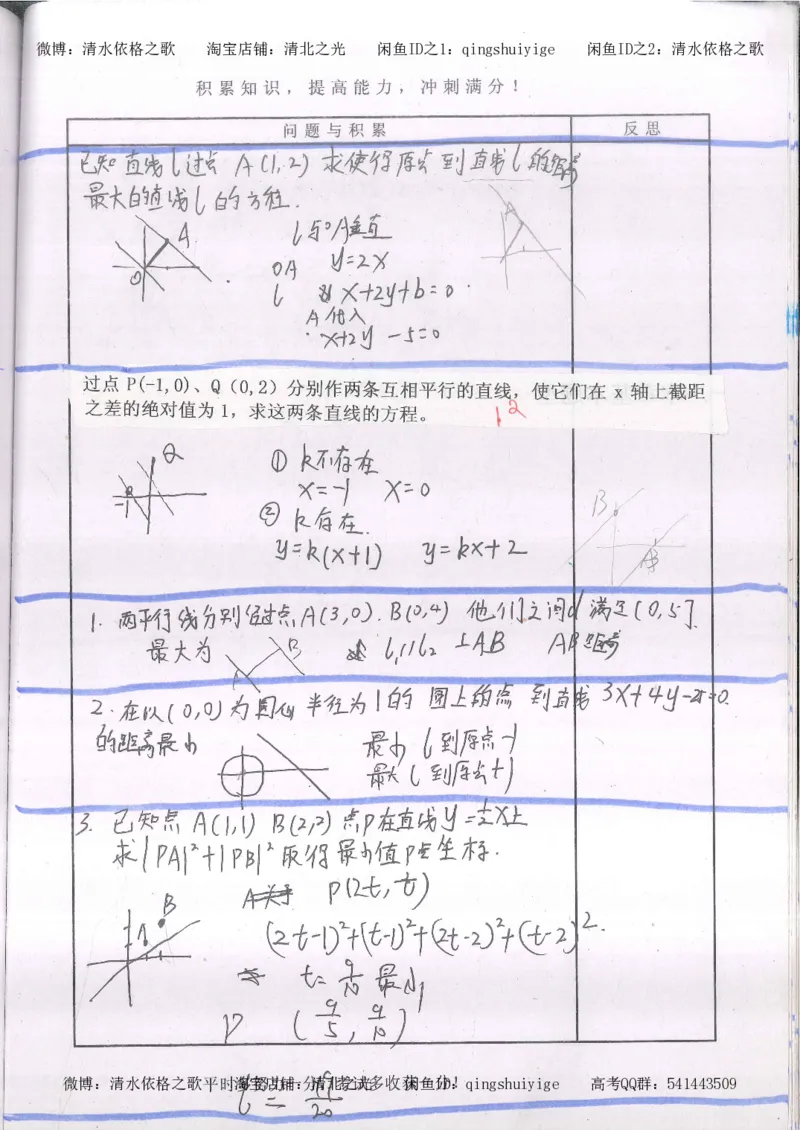 微博：清水依格之歌 淘宝店铺：清北之光 闲鱼ID之1：qingshuiyige 闲鱼ID之2：清水依格之歌
积累知识，提高能力，冲刺满分！
问题与积累 反思
已知直线l过点 A(1,2) 求使得原点到直线l的距离
最大的直线l的方程.
A
O
l与OA垂直
OA y=2x
l x+2y+b=0
A代入
x+2y-5=0
A
过点 P(-1,0)、Q（0,2）分别作两条互相平行的直线，使它们在 x 轴上截距
之差的绝对值为 1，求这两条直线的方程。
12
Q
-1
① k不存在
x=-1 x=0
② k存在.
y=k(x+1) y=kx+2
B
A
1. 两平行线分别经过点A(3,0).B(0,4) 他们之间d 满足(0,5].
最大为 B l₁//l₂ ⊥AB AB距离
2.在以(0,0)为圆心 半径为1的 圆上的点 到直线 3x+4y-25=0.
的距离最小
最小 l到原点-1
最大 l到原点+1
3. 已知点 A(1,1) B(2,2) 点P在直线y=½x上
求|PA|²+|PB|²取得最小值P点坐标.
P(2t,t)
B
(2t-1)²+(t-1)²+(2t-2)²+(t-2)².
t=9/10 最小
P (9/5, 9/10)
微博：清水依格之歌 淘宝店铺：清北之光 闲鱼ID：qingshuiyige 高考QQ群：541443509